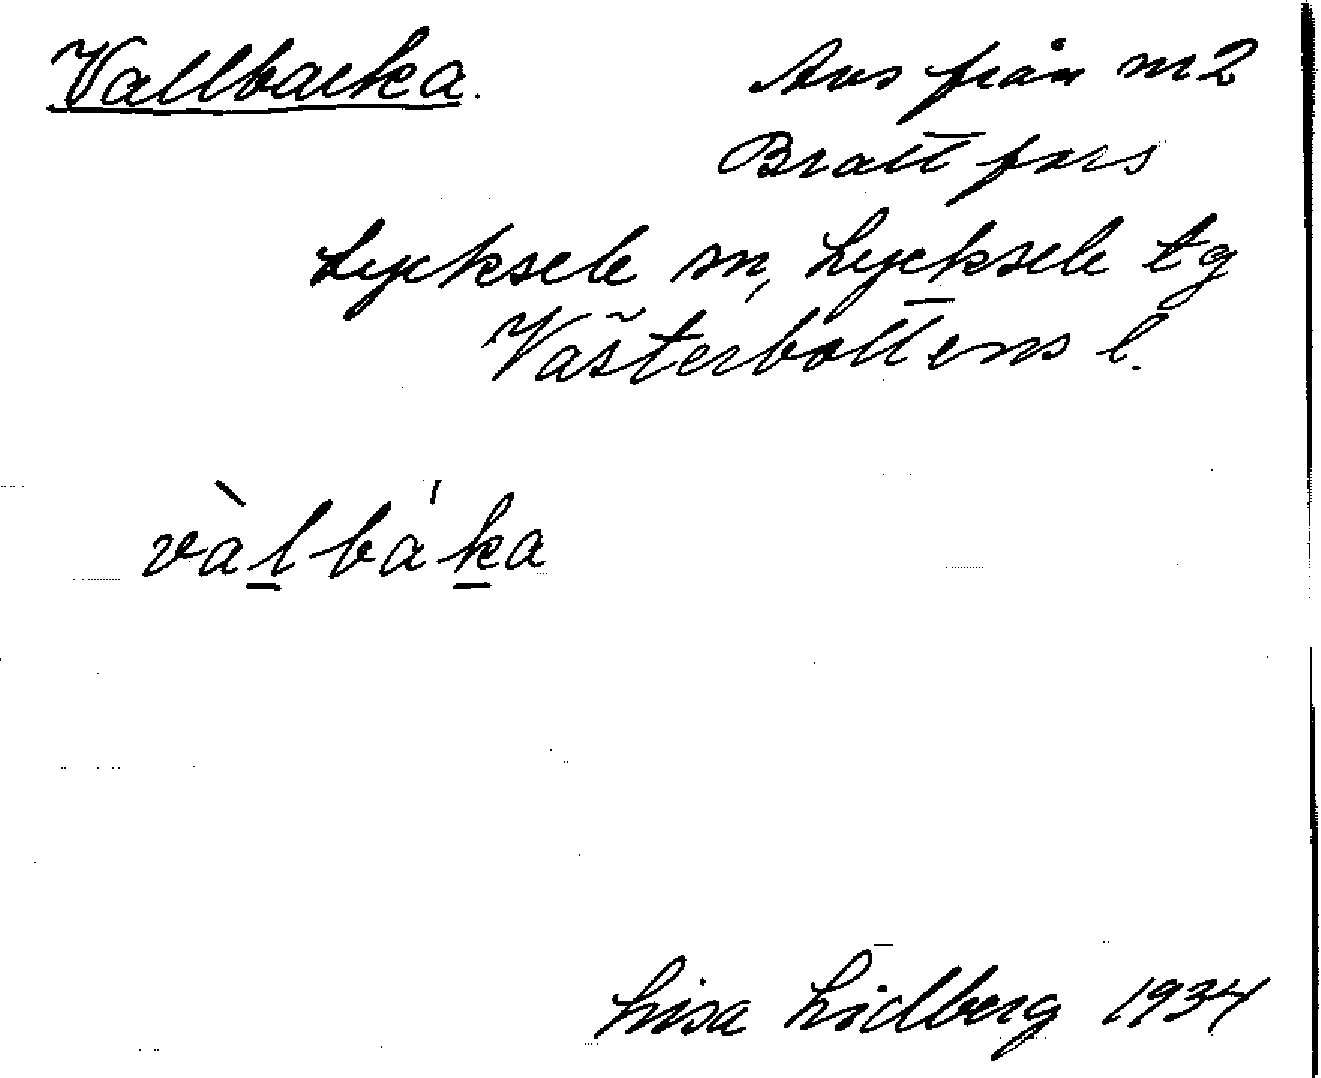 Vallbacka. Avs från m 2
Brattfors
Lycksele sn, Lycksele tg
Västerbottens l.
vàlbáka
Lisa Lidberg 1934